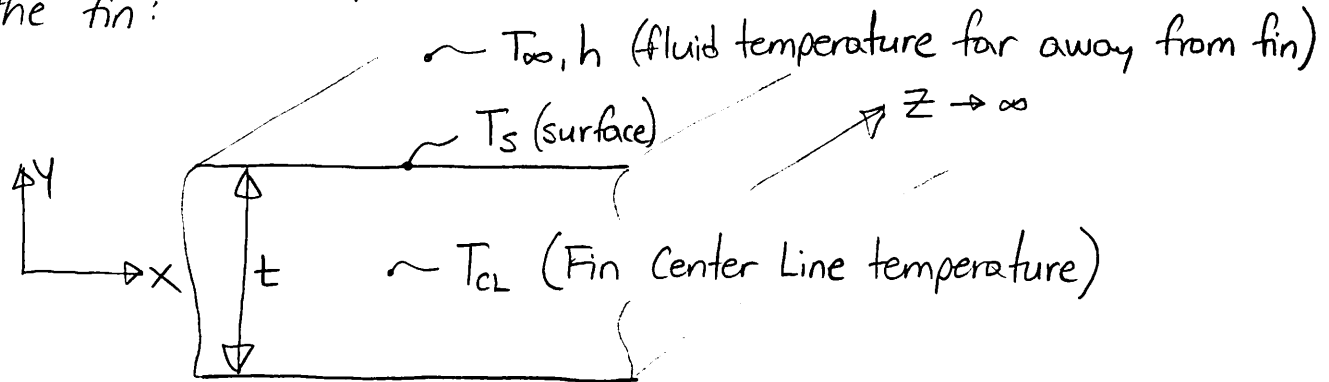 the fin:
T∞, h (fluid temperature far away from fin)
Z → ∞
Ts (surface)
Y
X
t
TCL (Fin Center Line temperature)